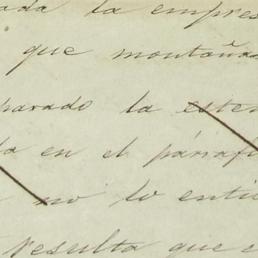 ada la empres
que montaña
parado la esten
da en el párrafo
no lo enti
resulta que e